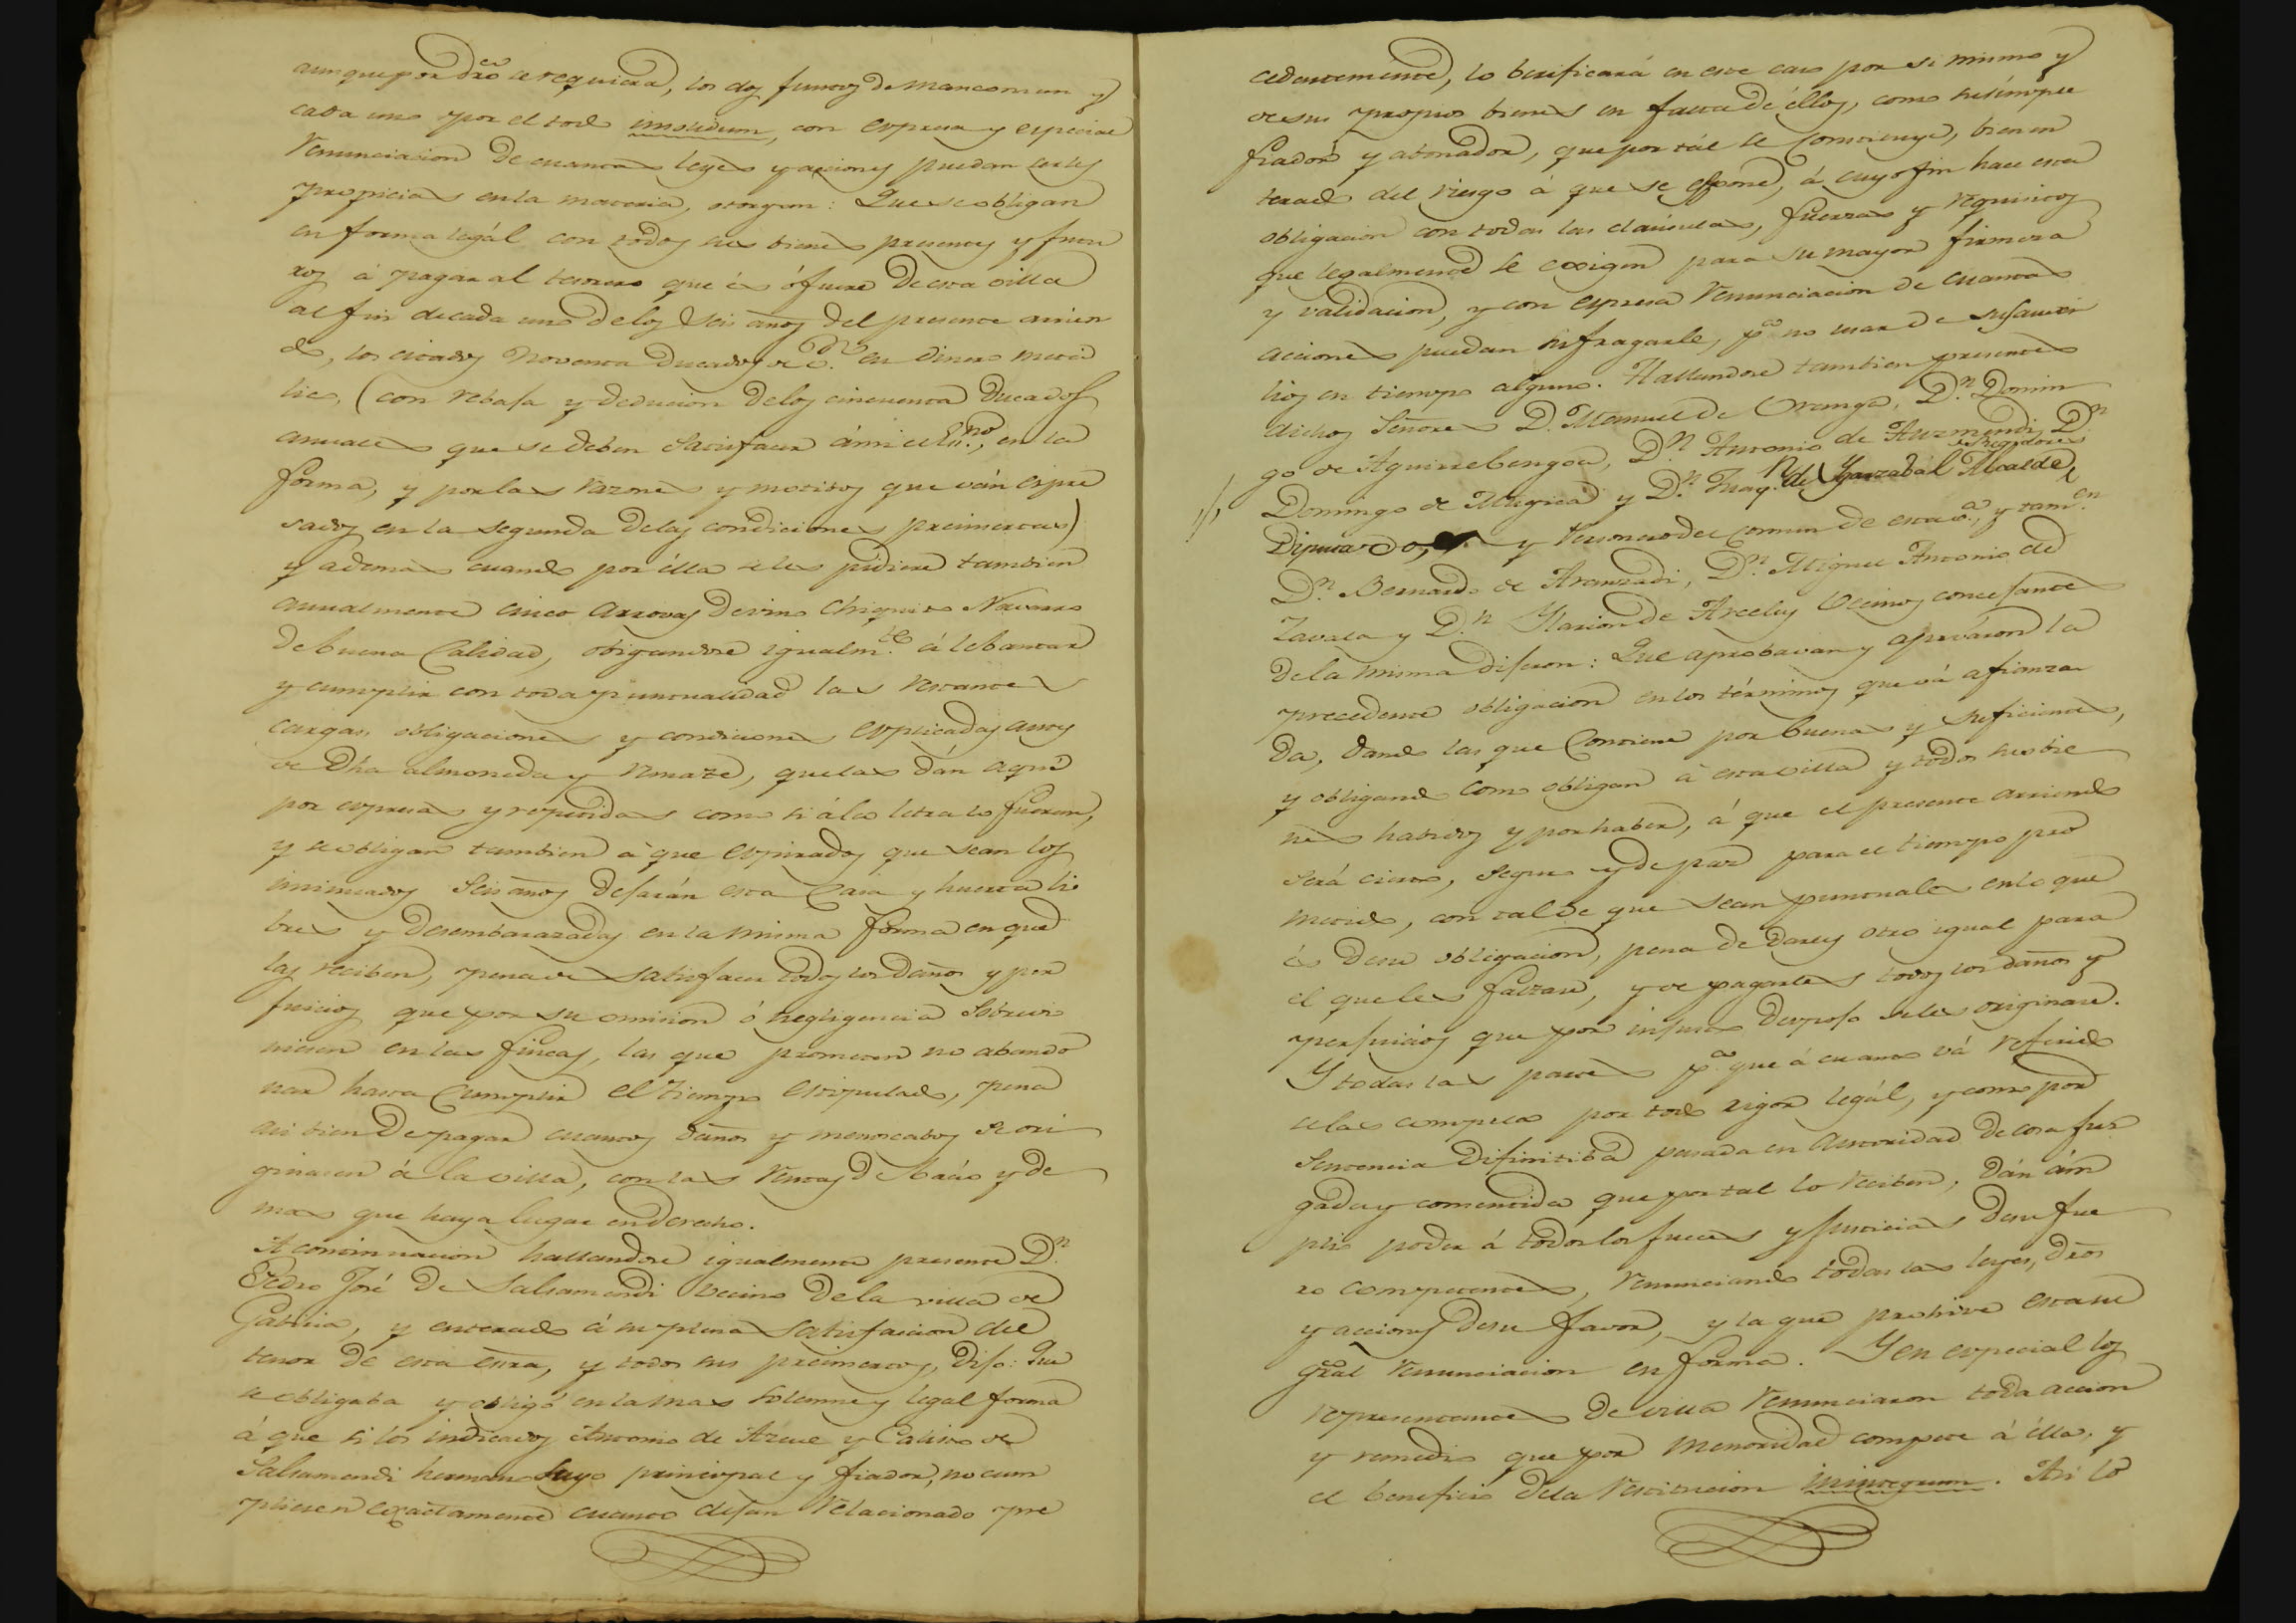 aunque por dro se requiera, los dos juntos de mancomun y
cada uno por el todo insolidum, con expresa y especial
renunciacion de cuantas leyes y acciones puedan serles
propicias en la materia, otorgan: Que se obligan
en forma legál con todos sus bienes presentes y futu
ros á pagar al tesorero que és ó fuere de esta villa
al fin de cada uno de los seis años del presente arrien
do, los citados noventa ducados de v.on en dinero metá
lico, (con rebaja y deducion de los cincuenta ducados
anuales que se deben satisfacer á mi el Es.no, en la
forma, y por las razones y motivos que ván expre
sados en la segunda de las condiciones preinsertas)
y ademas cuando por élla se les pidiere tambien
anualmente cinco arrovas de vino chiquito Navarro
de buena calidad, obligandose igualm.te á lebantar
y cumplir con toda puntualidad las restantes
cargas, obligaciones y condiciones explicadas antes
de dha almoneda y remate, que las dán aqui
por expresas y repetidas como si á la letra lo fueran,
y se obligan tambien á que espirados que sean los
insinuados seis años dejarán esta Casa y huerta li
bres y desembarazadas en la misma forma en que
las reciben, pena de satisfacer todos los daños y per
juicios que por su omision ó negligencia sobrevi
niesen en las fincas, las que prometen no abando
nar hasta cumplir el tiempo estipulado, pena
asi bien de pagar cuantos daños y menoscabos se ori
ginasen á la villa, con las rentas de bácio y de
mas que haya lugar en derecho.
A continuacion hallandose igualmente presente D.n
Pedro José de Salsamendi vecino de la villa de
Gabiria, y enterado á su plena satisfacion del
tenor de esta esrra, y todos sus preinsertos, dijo: Que
se obligaba y obligó en la mas solemne y legal forma
á que si los indicados Antonio de Azcue y Calisto de
Salsamendi hermano suyo principal y fiador, no cum
pliesen exactamente cuanto dejan relacionado pre
cedentemente, lo berificará en este caso por si mismo y
de sus propios bienes en falta de éllos, como su simple
fiador y abonador, que por tál se constituye, bien en
terado del riesgo á que se espone, á cuyo fin hace esta
obligacion con todas las cláusulas, fuerzas y requisitos
que legalmente se exigen para su mayor firmeza
y validacion, y con espresa renunciacion de cuantas
acciones puedan sufragarle, p.a no usar de sus auxi
lios en tiempo alguno. Hallandose tambien presentes
dichos Señores D.n Manuel de Oranga, D.n Domin
go de Aguirrebengoa, D.n Antonio de Auzmendi, D.n
Regidores
Domingo de Mugica y D.n Juaq.n de Yarzabal Alcalde,
Diputados, y Personero del comun de esta v.a, y tam.en
D.n Bernardo de Aranzadi, D.n Miguel Antonio de
Zavala y D.n Ylarion de Arcelus vecinos concejantes
de la misma dijeron: Que aprobavan y aprobaron la
precedente obligacion en los términos que vá afianza
da, dando las que contiene por buenas y suficientes,
y obligando como obligan á esta villa y todos sus bie
nes habidos y por haber, á que el presente arriendo
será cierto, seguro y de paz para el tiempo pro
metido, con tal de que sean puntuales en lo que
és de su obligacion, pena de darles otro igual para
el que les faltare, y de pagarles todos los daños y
perjuicios que por injusto despojo se les originare.
Y todas las partes p.a que á cuanto vá referido
se las compela por todo rigor legál, y como por
sentencia difinitiba pasada en autoridad de cosa juz
gada y consentida que por tal lo reciben, dán ám
plio poder á todos los jueces y justicias de su fue
ro competentes, renunciando todas las leyes, dros
y acciones de su favor, y la que prohive esta su
gral renunciacion en forma. Y en especial los
representantes de villa renunciaron toda accion
y remedio que por menoridad compete á élla, y
el beneficio de la restitucion inintegrum. Asi lo